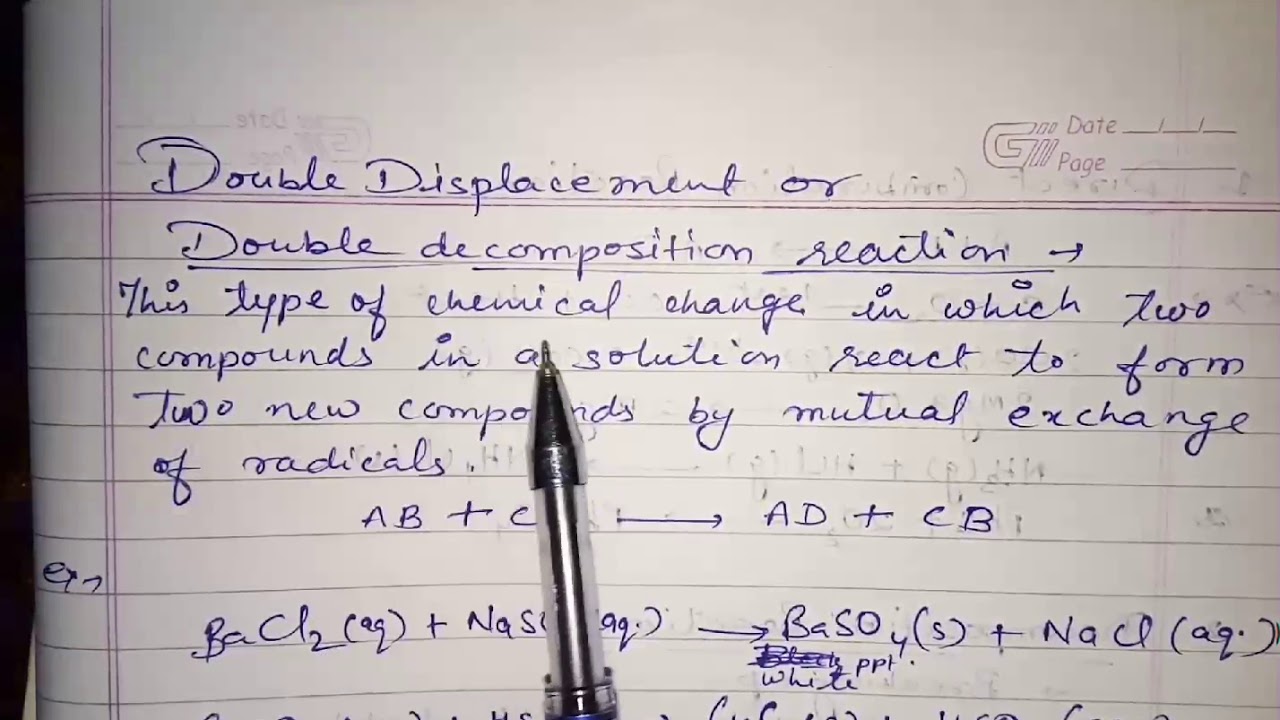 Date
Page
Double Displacement or
Double decomposition reaction →
This type of chemical change in which two
compounds in a solution react to form
two new compounds by mutual exchange
of radicals.
AB + C ⟶ AD + CB
ex,
BaCl₂ (aq) + NaS (aq.) ⟶ BaSO₄(s) + NaCl (aq.)
ppt.
white